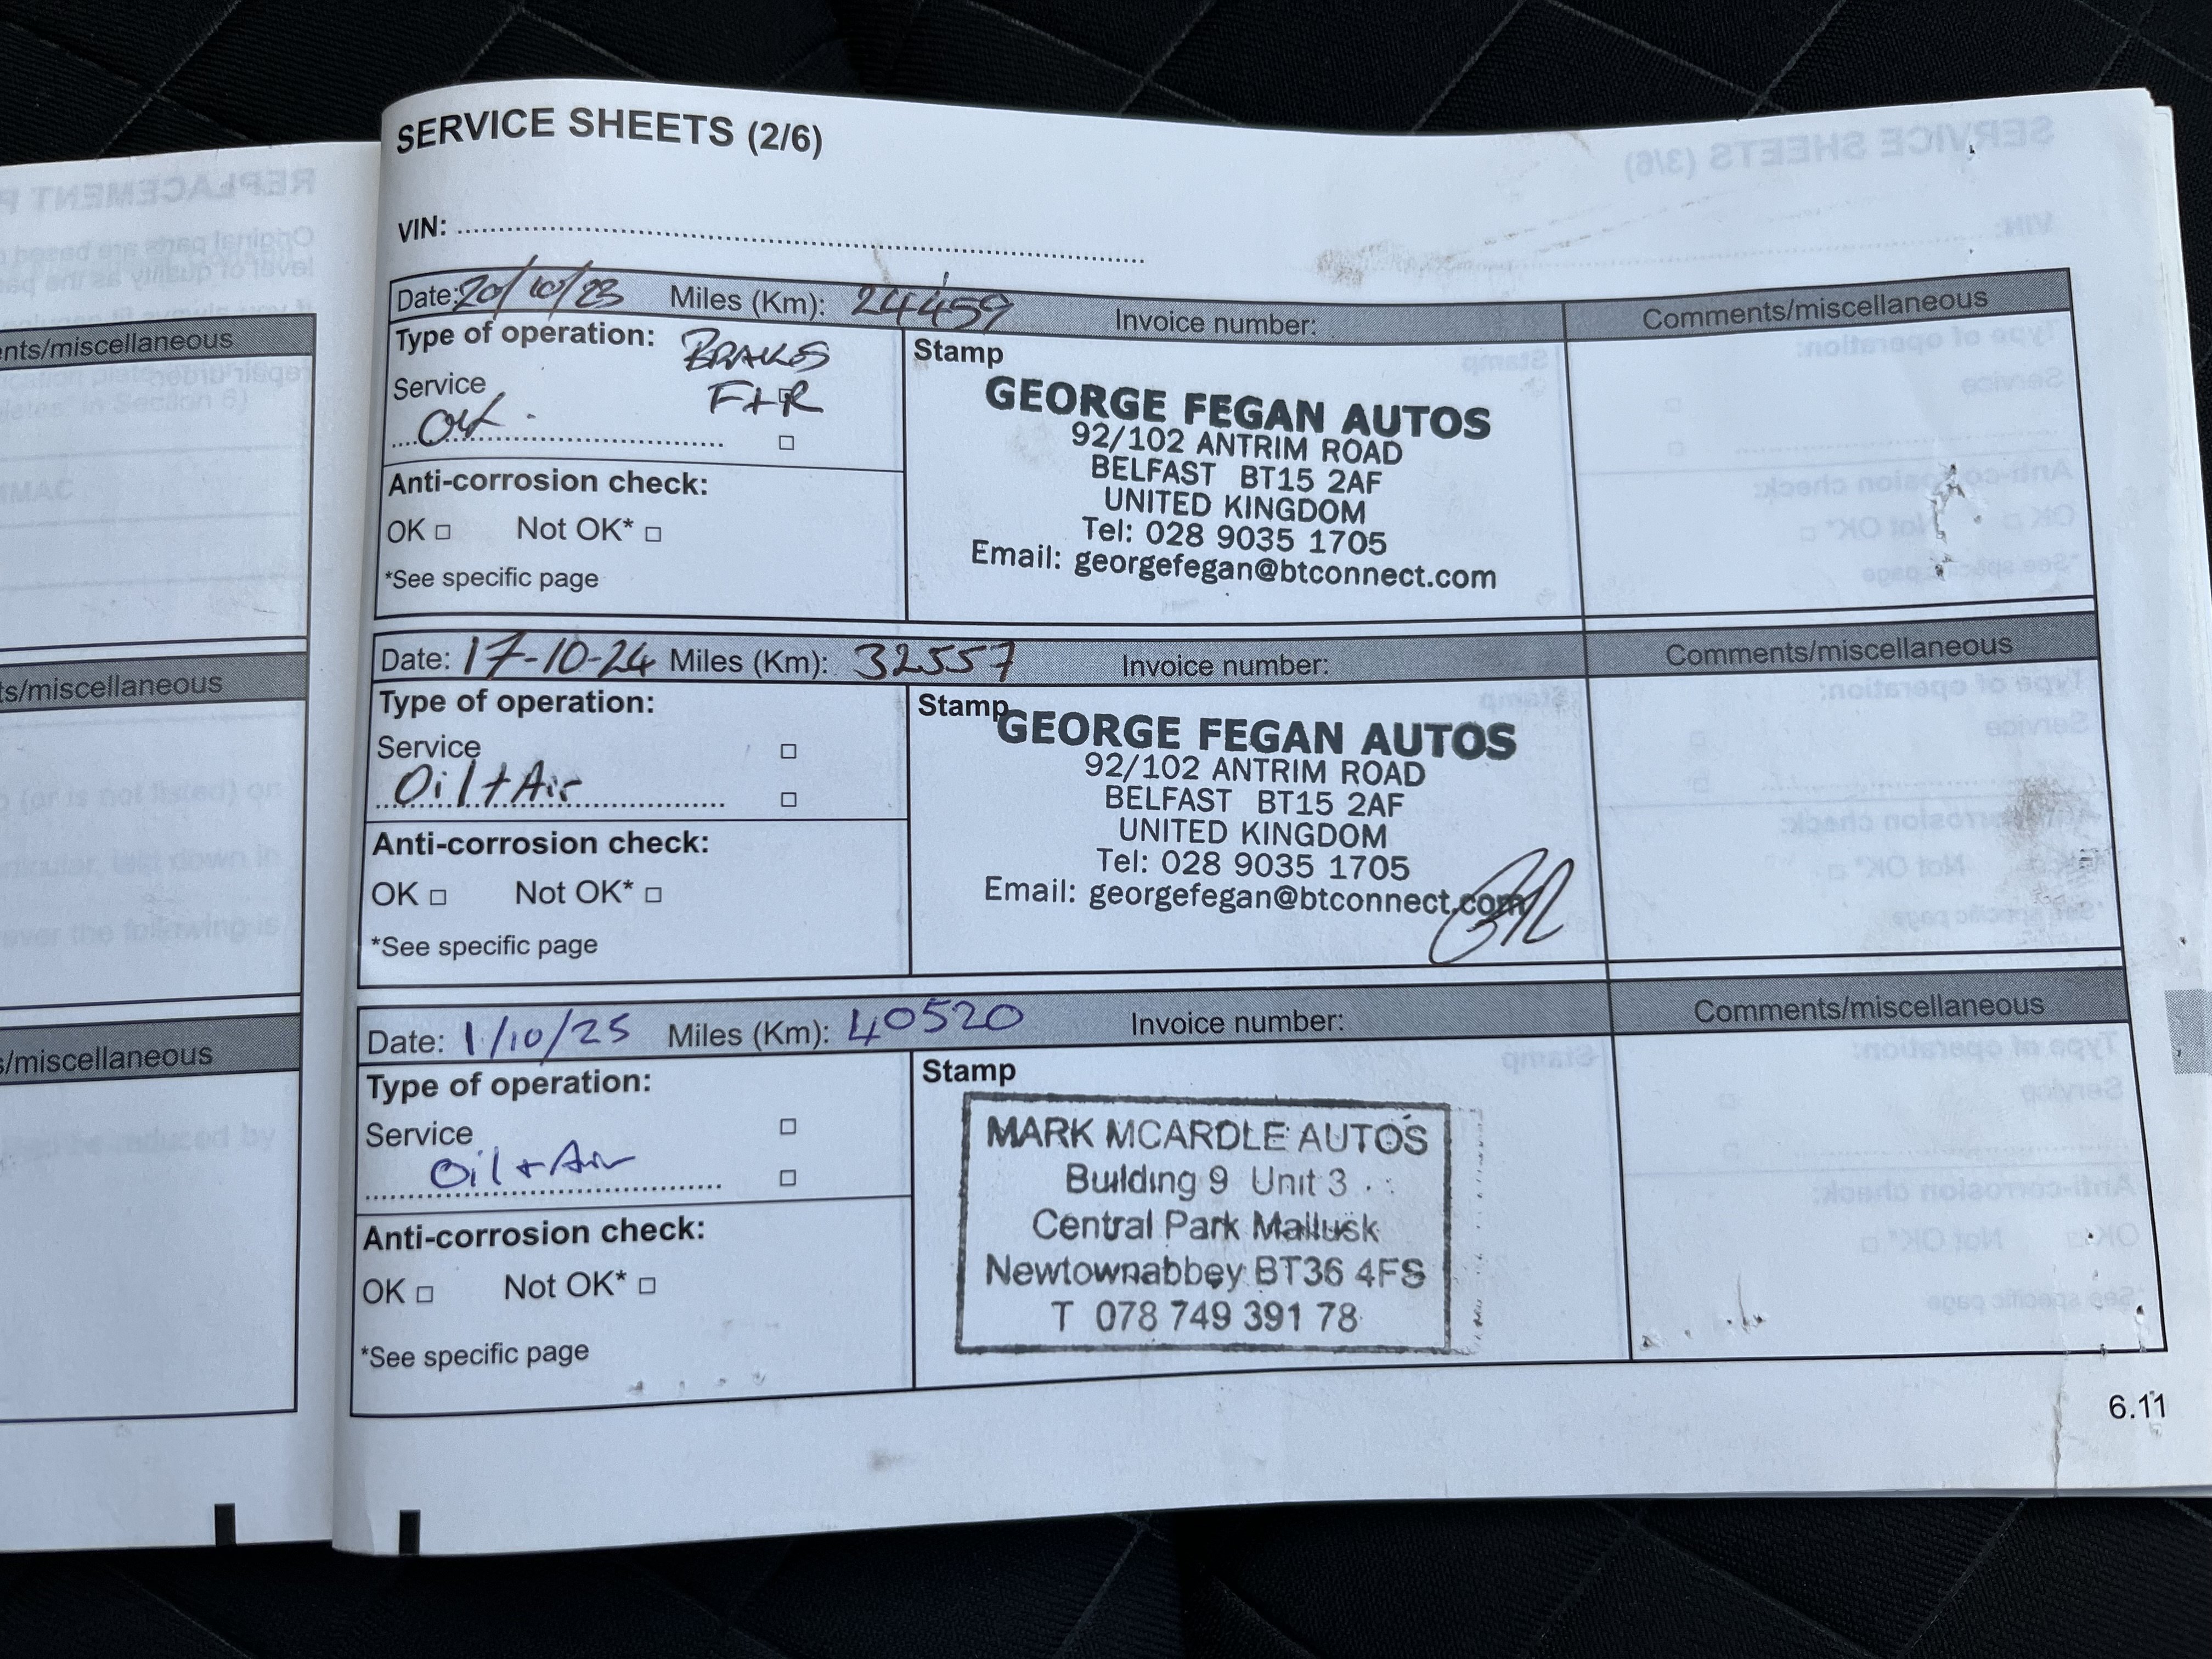 SERVICE SHEETS (2/6)
VIN:
Date: 20/10/23 Miles (Km): 24459 Invoice number: Comments/miscellaneous
Type of operation: BRAKES
Service F+R
Stamp
GEORGE FEGAN AUTOS
92/102 ANTRIM ROAD
BELFAST BT15 2AF
UNITED KINGDOM
Tel: 028 9035 1705
Email: georgefegan@btconnect.com
Anti-corrosion check:
OK □ Not OK* □
*See specific page
Date: 17-10-24 Miles (Km): 32557 Invoice number: Comments/miscellaneous
Type of operation:
Service
Oil + Air
Stamp
GEORGE FEGAN AUTOS
92/102 ANTRIM ROAD
BELFAST BT15 2AF
UNITED KINGDOM
Tel: 028 9035 1705
Email: georgefegan@btconnect.com
Anti-corrosion check:
OK □ Not OK* □
*See specific page
Date: 1/10/25 Miles (Km): 40520 Invoice number: Comments/miscellaneous
Type of operation:
Service
Oil + Air
Stamp
MARK MCARDLE AUTOS
Building 9 Unit 3
Central Park Mallusk
Newtownabbey BT36 4FS
T 078 749 391 78
Anti-corrosion check:
OK □ Not OK* □
*See specific page
6.11
nts/miscellaneous
ts/miscellaneous
s/miscellaneous